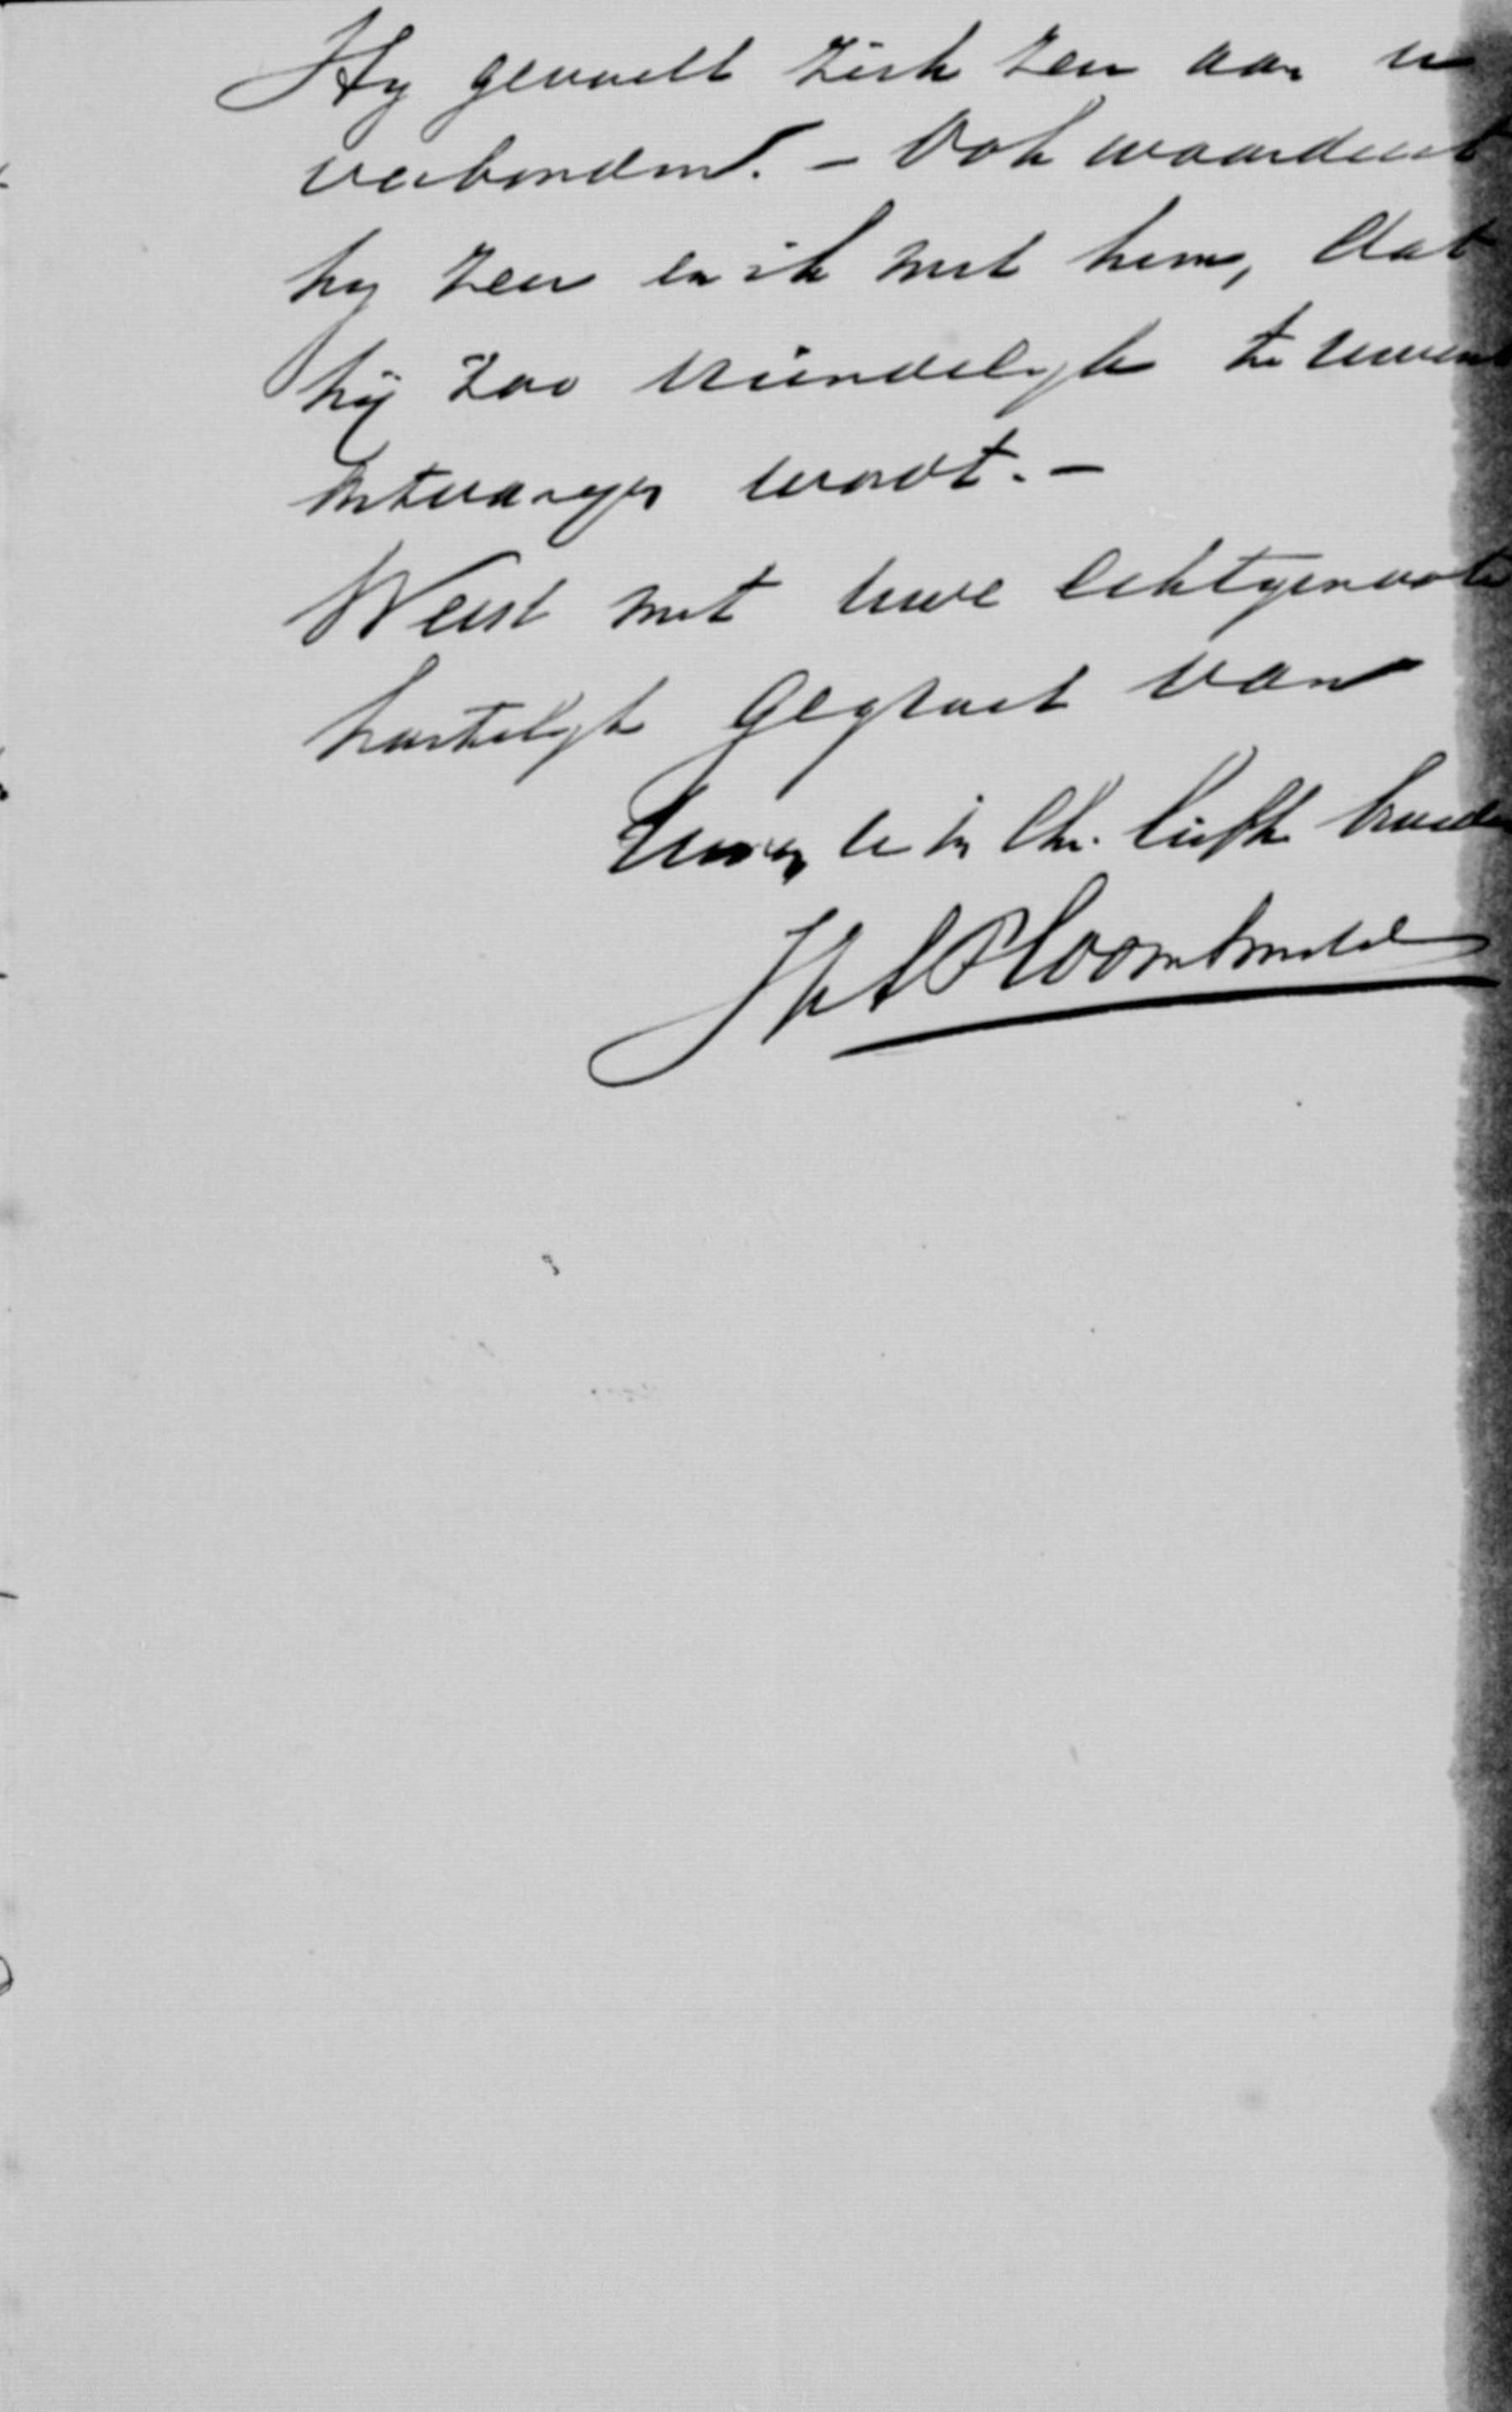 Hy gevoelt zich zeer aan u
verbonden. – Ook waardeert
hy zeer en ik met hem, dat
hij zoo vriendelyk te uwent
ontvangen wordt. –
Weest met uwe echtgenoote
hartelyk gegroet van
Uwen U in Chr. liefh. broeder